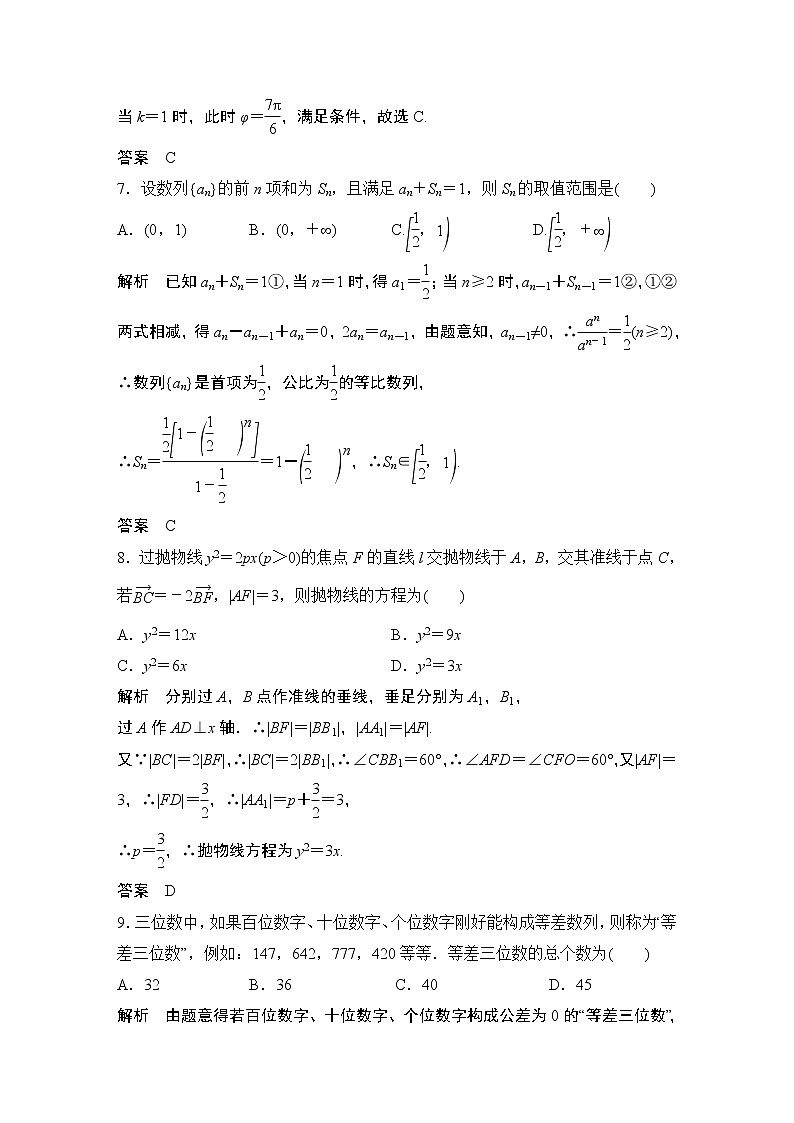 当 k＝1 时，此时 φ＝7π/6，满足条件，故选 C.
答案　C
7．设数列{an}的前 n 项和为 Sn，且满足 an＋Sn＝1，则 Sn 的取值范围是(　　)
A．(0，1)　　B．(0，＋∞)　　C.[1/2，1)　　D.[1/2，＋∞)
解析　已知 an＋Sn＝1①，当 n＝1 时，得 a1＝1/2；当 n≥2 时，an－1＋Sn－1＝1②，①②
两式相减，得 an－an－1＋an＝0，2an＝an－1，由题意知，an－1≠0，∴an/an－1＝1/2(n≥2)，
∴数列{an}是首项为1/2，公比为1/2的等比数列，
∴Sn＝1/2[1－(1/2)n]/1－1/2＝1－(1/2)n，∴Sn∈[1/2，1).
答案　C
8．过抛物线 y2＝2px(p＞0)的焦点 F 的直线 l 交抛物线于 A，B，交其准线于点 C，
若BC→＝－2BF→，|AF|＝3，则抛物线的方程为(　　)
A．y2＝12x　　B．y2＝9x
C．y2＝6x　　D．y2＝3x
解析　分别过 A，B 点作准线的垂线，垂足分别为 A1，B1，
过 A 作 AD⊥x 轴．∴|BF|＝|BB1|，|AA1|＝|AF|.
又∵|BC|＝2|BF|，∴|BC|＝2|BB1|，∴∠CBB1＝60°，∴∠AFD＝∠CFO＝60°，又|AF|＝
3，∴|FD|＝3/2，∴|AA1|＝p＋3/2＝3，
∴p＝3/2，∴抛物线方程为 y2＝3x.
答案　D
9．三位数中，如果百位数字、十位数字、个位数字刚好能构成等差数列，则称为“等
差三位数”，例如：147，642，777，420 等等．等差三位数的总个数为(　　)
A．32　　B．36　　C．40　　D．45
解析　由题意得若百位数字、十位数字、个位数字构成公差为 0 的“等差三位数”，